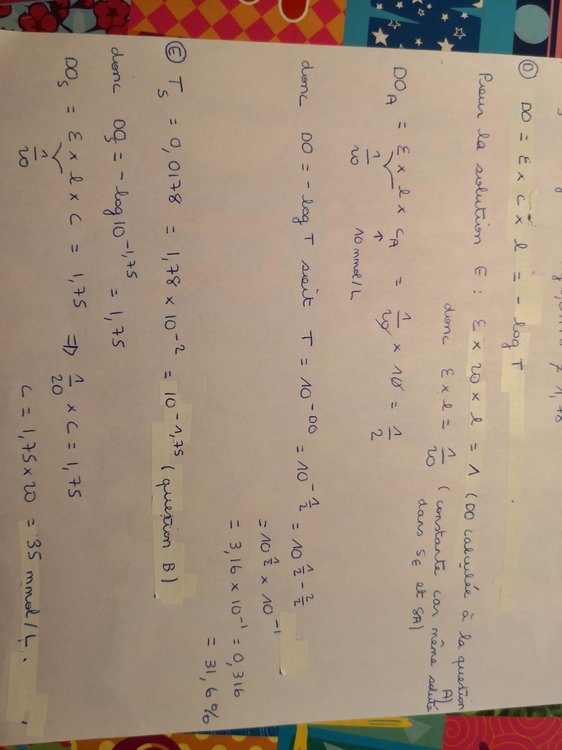 ≠ 1,78
Ⓓ DO = ε × c × l = - log T
Pour la solution E : ε × 20 × l = 1 (DO calculée à la question A)
donc ε × l = 1/20 (constante car même soluté dans S_E et S_A)
DO_A = ε × l × C_A = 1/20 × 10 = 1/2
1/20 ↑ 10 mmol/L
donc DO = - log T soit T = 10^-DO = 10^-1/2 = 10^1/2 - 2/2
= 10^1/2 × 10^-1
= 3,16 × 10^-1 = 0,316
= 31,6 %
Ⓔ T_S = 0,0178 = 1,78 × 10^-2 = 10^-1,75 (question B)
donc DO_S = - log 10^-1,75 = 1,75
DO_S = ε × l × C = 1,75 ⇒ 1/20 × C = 1,75
1/20
C = 1,75 × 20 = 35 mmol/L.